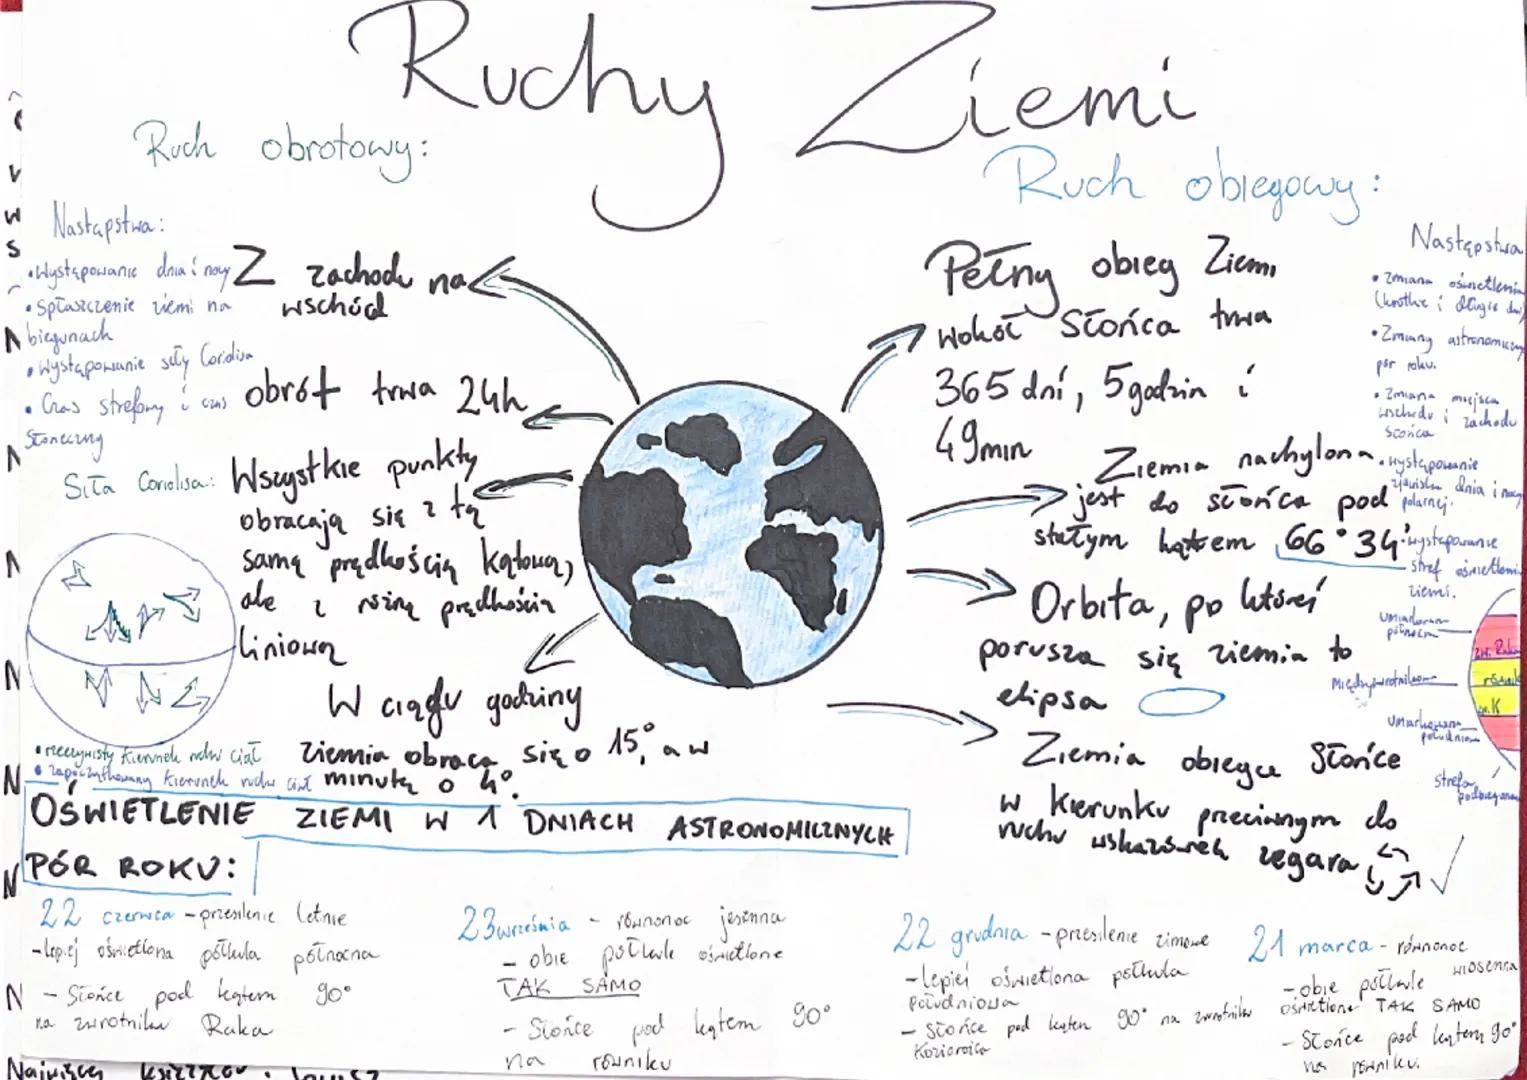 Ruchy Ziemi
Ruch obrotowy:
Następstwa:
• Występowanie dnia i nocy
• Spłaszczenie ziemi na
biegunach
• Występowanie siły Coriolisa
• Czas strefowy i czas
Słoneczny
Z zachodu na
wschód
obrót trwa 24h
Wszystkie punkty
obracają się z tą
samą prędkością kątową,
ale z różną prędkością
liniową
W ciągu godziny
ziemia obraca się o 15°, a w
minutę o 4°.
Siła Coriolisa:
• rzeczywisty kierunek ruchu ciał
• zapoczątkowany kierunek ruchu ciał
Ruch obiegowy:
Pełny obieg Ziemi
wokół Słońca trwa
365 dni, 5 godzin i
49min
Ziemia nachylona
jest do słońca pod
stałym kątem 66°34'
Orbita, po której
porusza się ziemia to
elipsa
Ziemia obiega Słońce
w kierunku przeciwnym do
ruchu wskazówek zegara
Następstwa
• zmiana oświetlenia
(krótkie i długie dni)
• Zmiany astronomiczny
pór roku.
• zmiana miejsca
wschodu i zachodu
Słońca
• występowanie
zjawiska dnia i nocy
polarnej.
• występowanie
stref oświetlenia
ziemi.
umiarkowana
północna
Międzyzwrotnikowa
umiarkowana
południowa
strefa
podbiegunowa
zw. Raka
równik
zw. K
OŚWIETLENIE ZIEMI W 1 DNIACH ASTRONOMICZNYCH
PÓR ROKU:
22 czerwca - przesilenie letnie
- lepiej oświetlona półkula północna
- Słońce pod kątem 90°
na zwrotniku Raka
23 września - równonoc jesienna
- obie półkule oświetlone
TAK SAMO
- Słońce pod kątem 90°
na równiku
22 grudnia - przesilenie zimowe
- lepiej oświetlona półkula
południowa
- Słońce pod kątem 90° na zwrotniku
Koziorożca
21 marca - równonoc
wiosenna
- obie półkule
oświetlone TAK SAMO
- Słońce pod kątem 90°
na równiku.